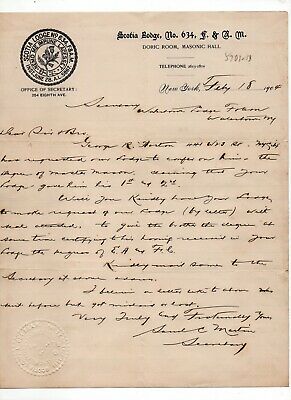 Scotia Lodge, No. 634, F. & A. M.
DORIC ROOM, MASONIC HALL
TELEPHONE
OFFICE OF SECRETARY:
264 EIGHTH AVE.
New York, Feby 18 1904
Secretary
Watertown Lodge
Watertown NY
Dear Sir & Bro,
George R. Horton 441 W 23 St. NY City
has requested our Lodge to confer on him the
degree of Master Mason, claiming that your
Lodge gave him his 1st & 2d.
Will you Kindly have your Lodge
to make request of our Lodge (by letter) with
seal attached. to give the brother the degree at
same time certifying to his having received in your
Lodge the degrees of E.A and F.C.
Kindly mail same to the
Secretary at above address.
I believe a letter was
sent before but got mislaid or lost.
Very Truly and Fraternally Yours
Saml C Martin
Secretary